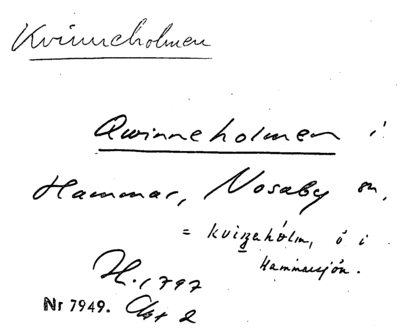 Kvinneholmen
Qwinneholmen i
Hammar, Nosaby sn,
= kvinnaholm, ö i
Hammarsjön.
H. 1797
Nr 7949. Akt 2